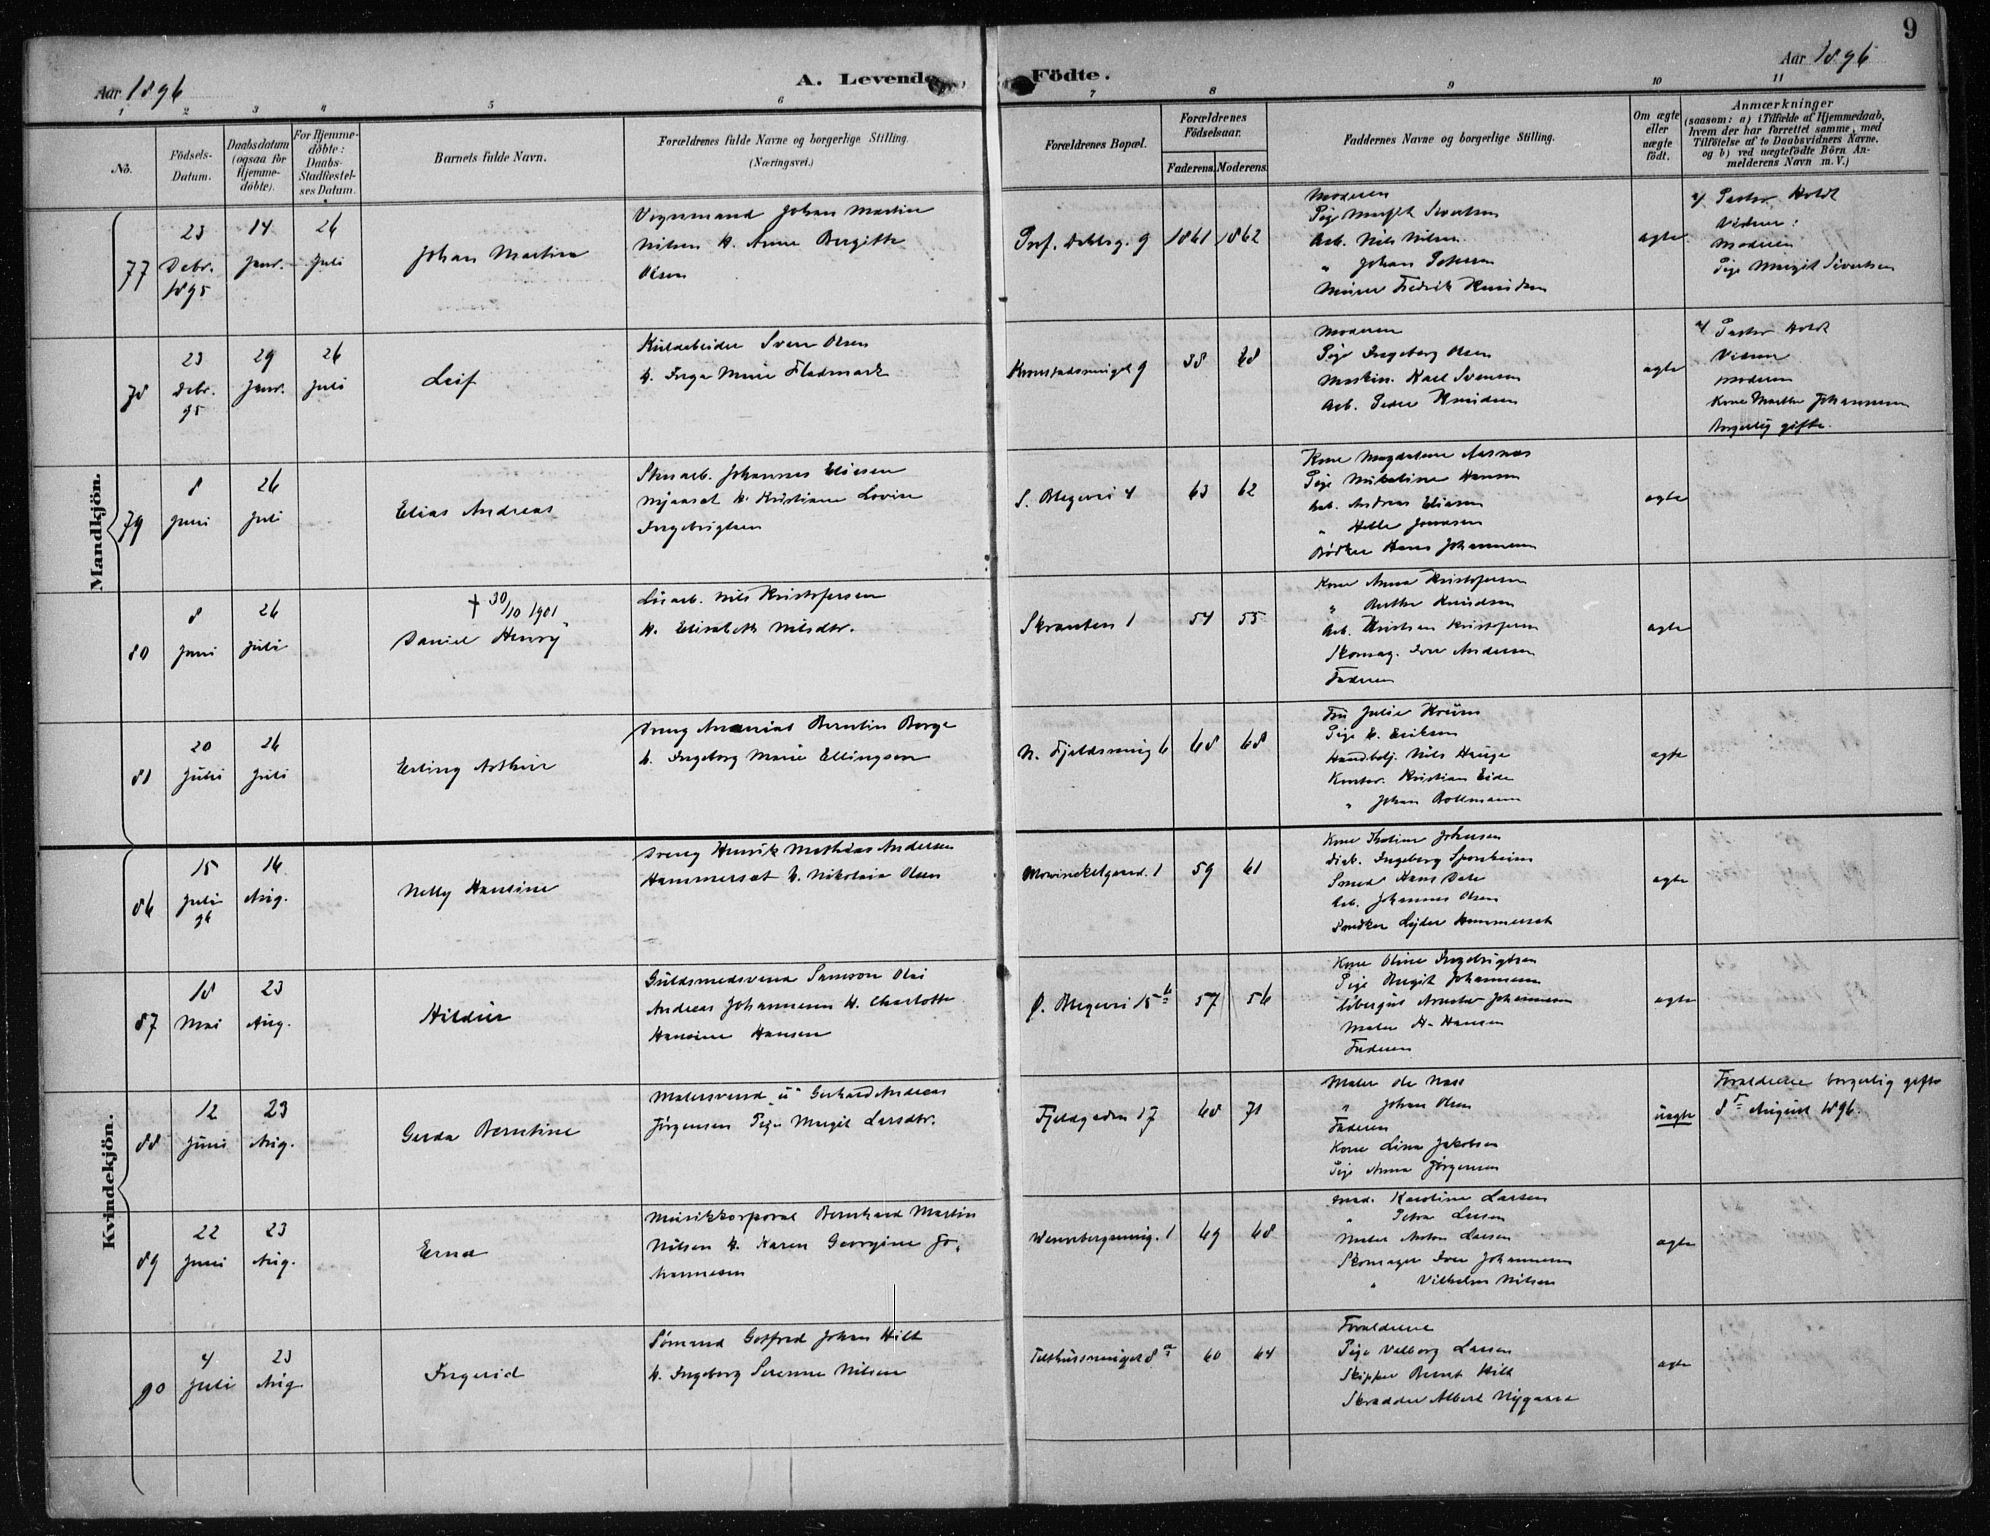 9
Aar 1896
A. Levende Födte.
Aar 1896
1 2 3 4 5 6 7 8 9 10 11
No.
Födsels-Datum.
Daabsdatum (ogsaa for Hjemme-döbte).
For Hjemme-döbte: Daabs-Stadfæstel-ses Datum.
Barnets fulde Navn.
Forældrenes fulde Navne og borgerlige Stilling.
(Næringsvei.)
Forældrenes Bopæl.
Forældrenes Födselsaar.
Faderens. Moderens.
Faddernes Navne og borgerlige Stilling.
Om ægte eller uægte födt.
Anmærkninger
(saasom: a) i Tilfælde af Hjemmedaab,
hvem der har forrettet samme, med
Tilföielse af to Daabsvidners Navne.
og b) ved uægtefödte Börn An-
melderens Navn m. V.)
Mandkjön.
77
23 Debr. 1895
14 Janr.
26 Juli
Johan Martin
Vognmand Johan Martin
Nilsen H. Anne Bergitte
Olsen
1861 1862
Moderen
Pige Margit Sivertsen
Arb. Nils Nilsen
" Johan Petersen
Murer Fredrik Knudsen
ægte
a/ Pastor Holdt
Vidner:
Moderen
Pige Margit Sivertsen
78
23 Debr. 95
29 Janr.
26 Juli
Leif
Kuldebeider Sven Olsen
H. Inga Marie Fladmark
Kronstadsmuget 9
Moderen
Pige Ingeborg Olsen
Maskin. Karl Svensen
Arb. Peder Knudsen
ægte
a/ Pastor Holdt
Vidner
Moderen
Kone Marthe Johannesen
borgerlig gifte.
79
8 Juni
26 Juli
Elias Andreas
Stenarb. Johannes Eliesen
Myaaset H. Kristiane Lovise
Ingebrigtsen
S. Blegevei 4
63 62
Kone Magdalene Aasnæs
Pige Mikaline Hansen
Arb. Andreas Eliasen
" Helle Jonassen
Bødker Hans Johannesen
ægte
80
8 Juni
26 Juli
† 30/10 1901
Daniel Henry
Løsarb. Nils Kristofersen
H. Elisabeth Nilsdtr.
Skranten 1
54 55
Kone Anna Kristofersen
" Berthe Knudsen
Arb. Kristian Kristofersen
Skomag. Iver Andersen
Faderen
ægte
81
20 Juli
26 Juli
Erling Arthur
Dreng Ananias Berntin Berge
H. Ingeborg Marie Ellingsen
N. Fjeldsmug 6
68 68
Fru Julie Krüm
Pige H. Eriksen
Handbetj. Nils Hauge
Kontor. Kristian Eide
" Johan Bollmann
ægte
Kvindekjön.
86
15 Juli 96
16 Aug.
Nelly Hansine
Dreng Henrik Mathias Andersen
Hammersæt H. Nikolaia Olsen
Mowinckelgaard. 1
59 61
Kone Thaline Johnsen
Diak. Ingeborg Sponheim
Smed Hans Dale
Arb. Johannes Olsen
Snedker Lyder Hammerset
ægte
87
18 Mai
23 Aug.
Hildur
Guldsmedsvend Samson Olai
Andreas Johannesen H. Charlotte
Hansine Hansen
Ø. Blegevei 15 b
57 56
Kone Oline Ingebrigtsen
Pige Birgit Johannesen
Maler H. Hansen
Faderen
ægte
88
12 Juni
23 Aug.
Gerda Berntine
Malersvend u Gerhard Andreas
Jørgensen Pige Margit Larsdtr.
Fjeldgaden 17
68 71
Maler Ole Næss
" Johan Olsen
Faderen
Kone Lina Jakobsen
Pige Anna Jørgensen
uægte
Forældrene borgerlig gifte
8de August 1896.
89
22 Juni
23 Aug.
Erna
Musikkorporal Bernhard Martin
Nilsen H. Karen Georgine Jo-
hannesen
Wesenbergsmug. 1
69 68
Mad. Karoline Larsen
" Petra Larsen
Maler Anton Larsen
Skomager Iver Johannesen
" Vilhelm Nilsen
ægte
90
4 Juli
23 Aug
Ingerid
Sømand Gotfred Johan Hilt
H. Ingeborg Serenne Nilsen
Telthussmuget 8 a
60 64
Forældrene
Pige Valborg Larsen
Skipper Bernt Hilt
Skrædder Albert Nygaard
ægte